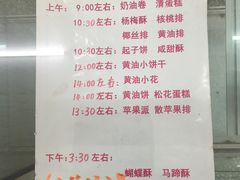 上午： 9:00左右：奶油卷 清蛋糕
10:30左右：杨梅酥 核桃排
椰丝排 黄油排
10:30左右：起子饼 咸甜酥
12:00左右：黄油小饼干
14:00左右：黄油小花
14:00左右：黄油饼 松花蛋糕
13:30左右：苹果派 散苹果排
下午：3:30左右：
蝴蝶酥 马蹄酥